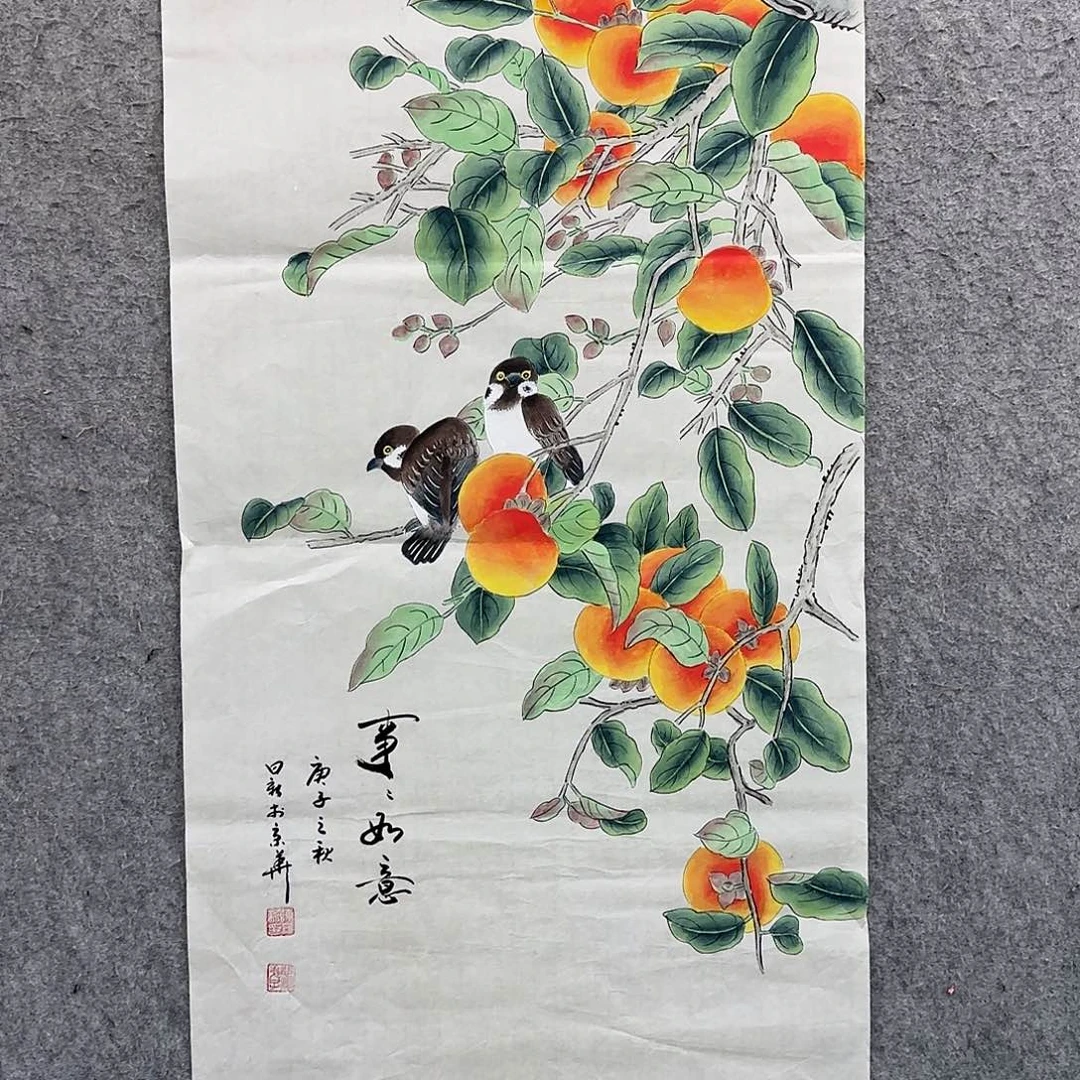 事〻如意
庚子之秋
日新於京華